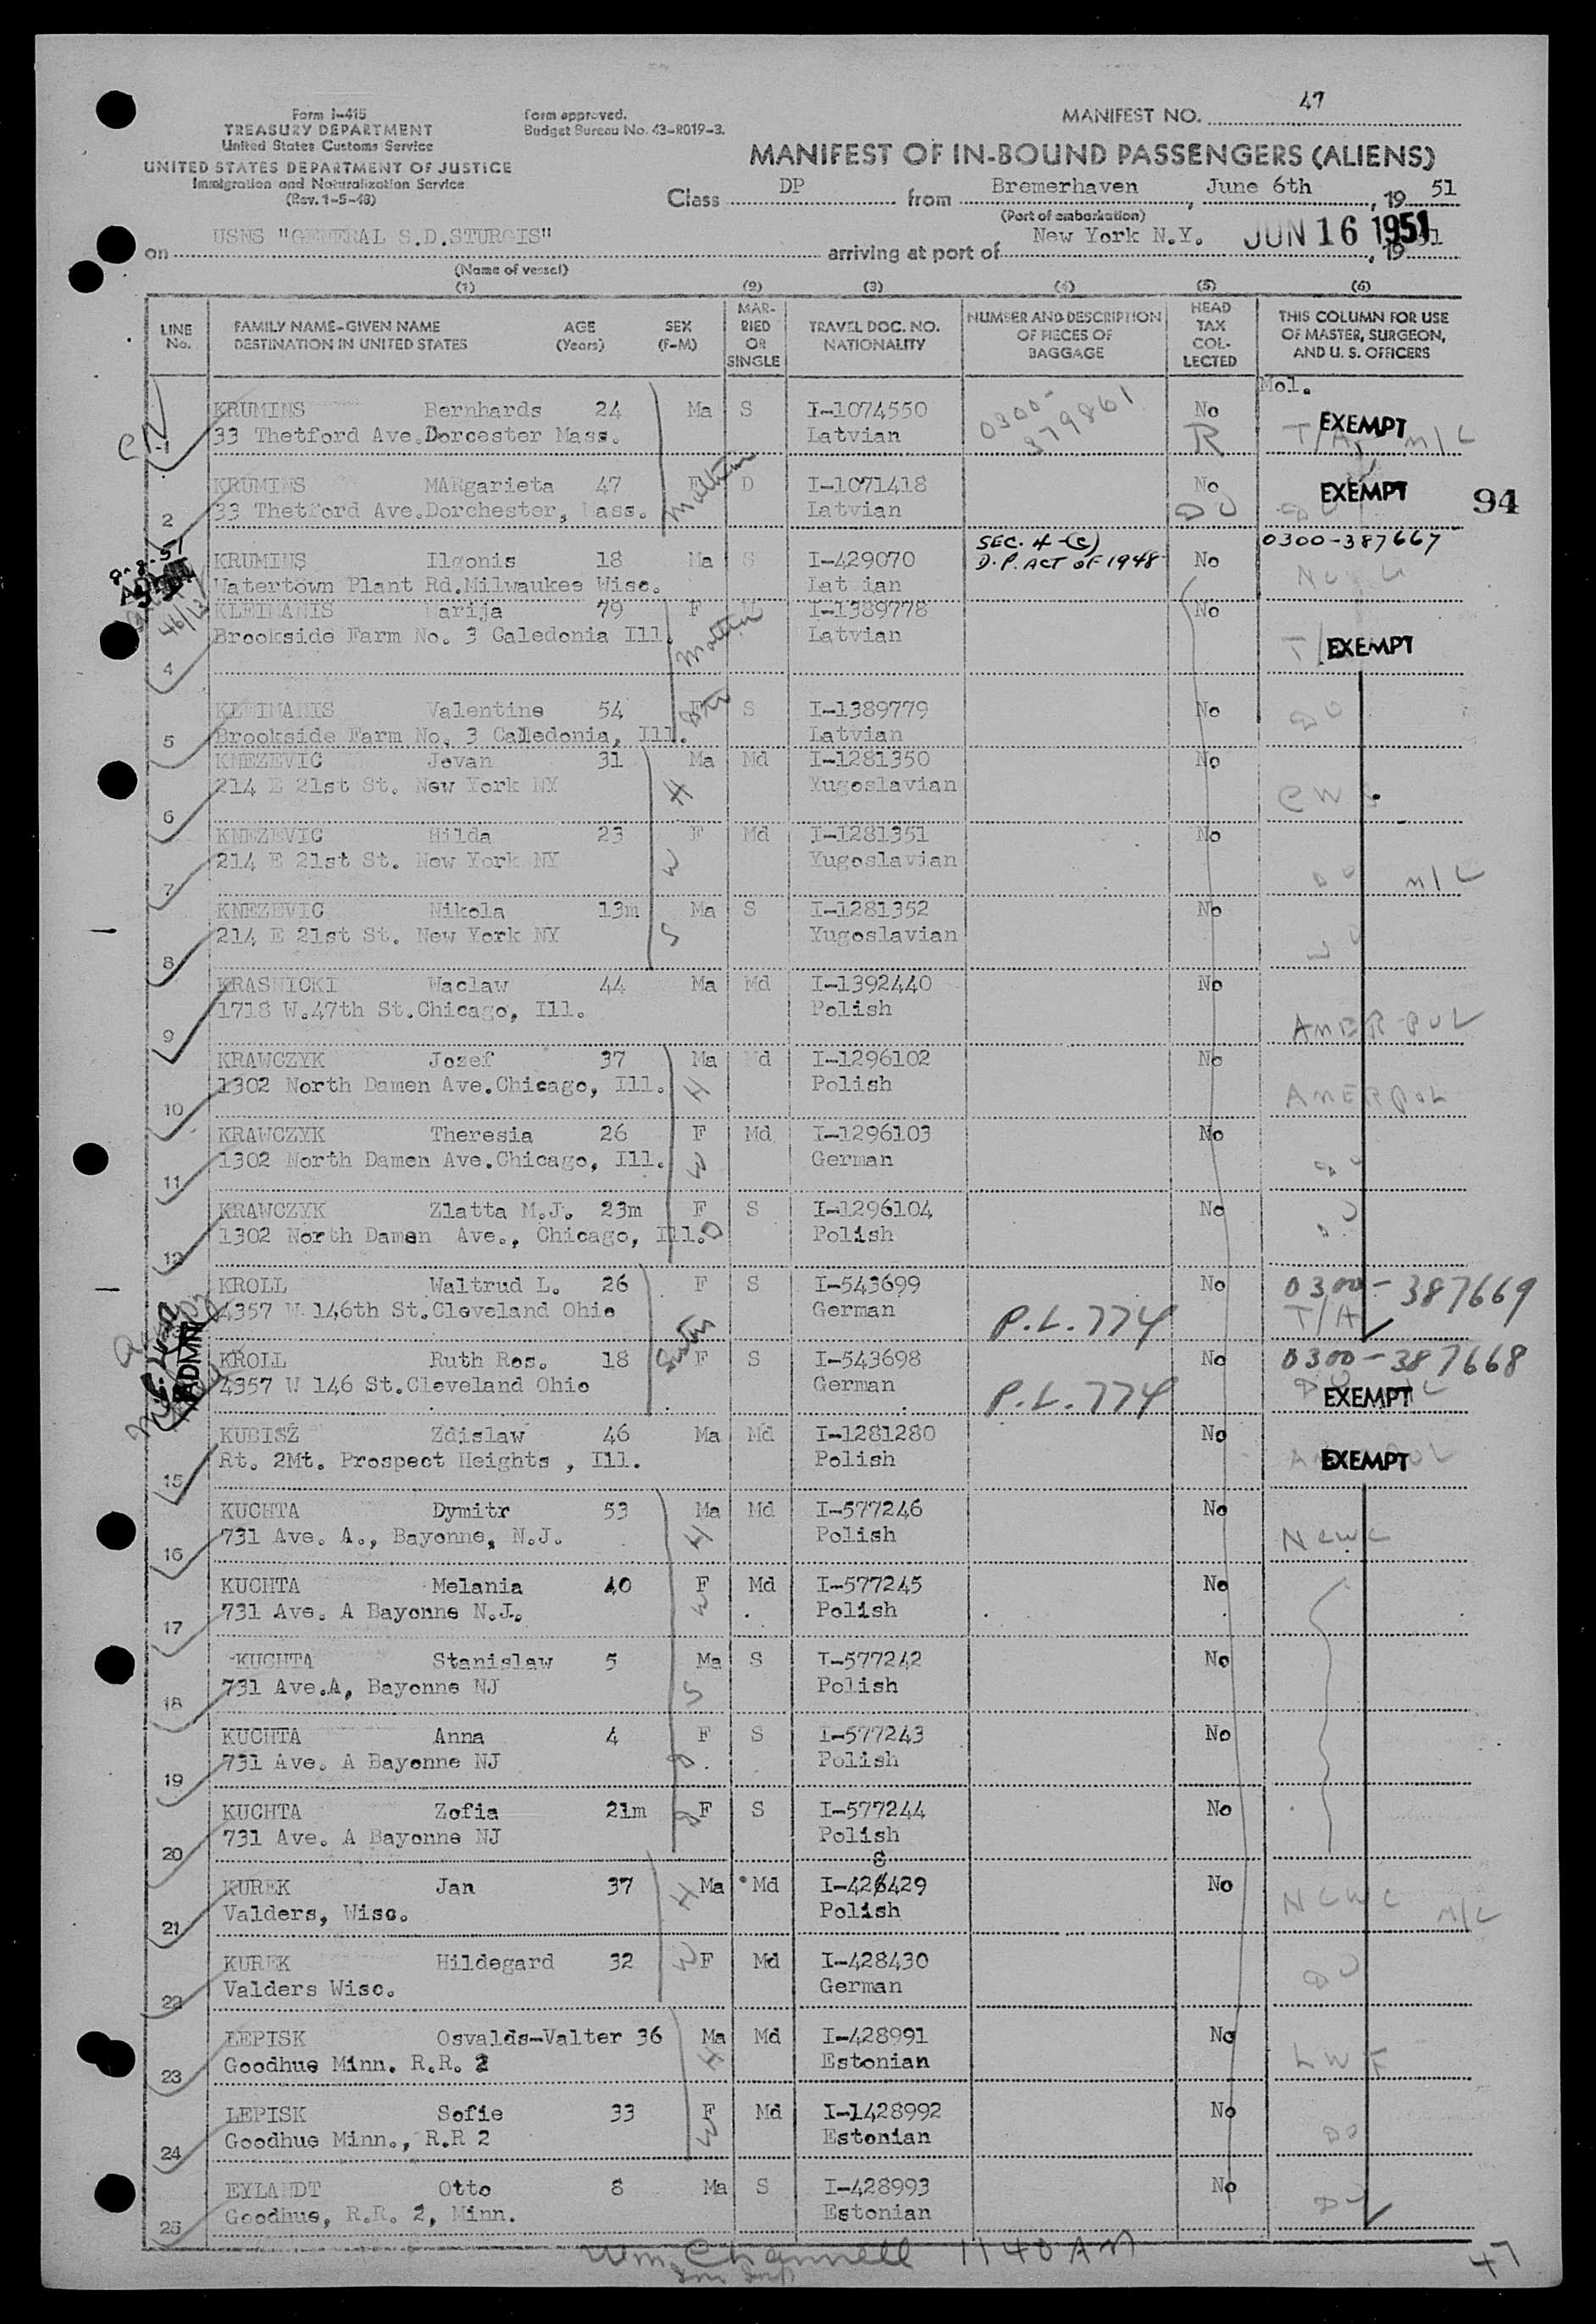 Form I-415
TREASURY DEPARTMENT
United States Customs Service
UNITED STATES DEPARTMENT OF JUSTICE
Immigration and Naturalization Service
(Rev. 1-5-48)
Form approved.
Budget Bureau No. 43-R019-3.
MANIFEST NO. 47
MANIFEST OF IN-BOUND PASSENGERS (ALIENS)
Class DP from Bremerhaven, June 6th, 19 51
(Port of embarkation)
on USNS "GENERAL S.D.STURGIS" arriving at port of New York N.Y. JUN 16 1951, 19 51
(Name of vessel)
(1) (2) (3) (4) (5) (6)
LINE No. FAMILY NAME-GIVEN NAME DESTINATION IN UNITED STATES AGE (Years) SEX (F-M) MARRIED OR SINGLE TRAVEL DOC. NO. NATIONALITY NUMBER AND DESCRIPTION OF PIECES OF BAGGAGE HEAD TAX COLLECTED THIS COLUMN FOR USE OF MASTER, SURGEON, AND U. S. OFFICERS
Mol.
KRUMINS Bernhards 24 Ma S I-1074550 0300-379861 No EXEMPT
33 Thetford Ave.Dorcester Mass. Latvian R T/A M/C
KRUMINS MARgarieta 47 F Mother D I-1071418 No EXEMPT
2 33 Thetford Ave.Dorchester, Mass. Latvian DO DO
94
KRUMINS Ilgonis 18 Ma S I-429070 SEC. 4-(c) D.P. ACT OF 1948 No 0300-387667
Watertown Plant Rd.Milwaukee Wisc. Latvian
KLEIMANIS Marija 79 F Mother I-1389778 No
4 Brookside Farm No. 3 Caledonia Ill. Latvian T/ EXEMPT
KLEIMANIS Valentine 54 F S I-1389779 No DO
5 Brookside Farm No. 3 Calledonia, Ill. Latvian
KNEZEVIC Jovan 31 H Ma Md I-1281350 No
6 214 E 21st St. New York NY Yugoslavian CWS
KNEZEVIC Hilda 23 W F Md I-1281351 No
7 214 E 21st St. New York NY Yugoslavian DO M/C
KNEZEVIC Nikola 13m S Ma S I-1281352 No
8 214 E 21st St. New York NY Yugoslavian DO
KRASNICKI Waclaw 44 Ma Md I-1392440 No
9 1718 W.47th St.Chicago, Ill. Polish AMER POL
KRAWCZYK Jozef 37 H Ma Md I-1296102 No
10 1302 North Damen Ave.Chicago, Ill. Polish AMERPOL
KRAWCZYK Theresia 26 W F Md I-1296103 No
11 1302 North Damen Ave.Chicago, Ill. German DO
KRAWCZYK Zlatta M.J. 23m D F S I-1296104 No
12 1302 North Damen Ave., Chicago, Ill. Polish DO
KROLL Waltrud L. 26 F S I-543699 No 0300-387669
4357 W 146th St.Cleveland Ohio German P.L. 774 T/A
KROLL Ruth Ros. 18 Sister F S I-543698 No 0300-387668
4357 W 146 St.Cleveland Ohio German P.L. 774 EXEMPT
ADMN
KUBISZ Zdislaw 46 Ma Md I-1281280 No
15 Rt. 2Mt. Prospect Heights , Ill. Polish EXEMPT
KUCHTA Dymitr 53 H Ma Md I-577246 No
16 731 Ave. A., Bayonne, N.J. Polish NCWC
KUCHTA Melania 40 W F Md I-577245 No
17 731 Ave. A Bayonne N.J. Polish
KUCHTA Stanislaw 5 S Ma S I-577242 No
18 731 Ave.A, Bayonne NJ Polish
KUCHTA Anna 4 D F S I-577243 No
19 731 Ave. A Bayonne NJ Polish
KUCHTA Zofia 21m D F S I-577244 No
20 731 Ave. A Bayonne NJ Polish
8
KUREK Jan 37 H Ma Md I-426429 No NCWC
21 Valders, Wisc. Polish M/C
KUREK Hildegard 32 W F Md I-428430
22 Valders Wisc. German DO
LEPISK Osvalds-Valter 36 H Ma Md I-428991 No
23 Goodhue Minn. R.R. 2 Estonian LWF
LEPISK Sofie 33 W F Md I-1428992 No
24 Goodhue Minn., R.R 2 Estonian DO
EYLANDT Otto 8 Ma S I-428993 No
25 Goodhue, R.R. 2, Minn. Estonian DO
Wm Channell 1140 AM
Imm Insp
47